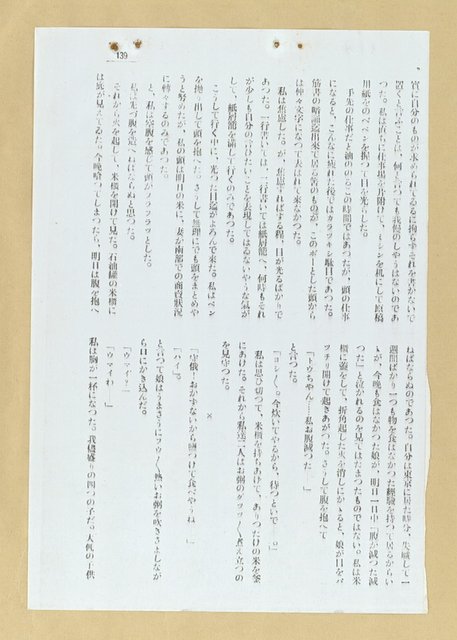 139
實に自分のものが求められてゐるに拘らずそれを書かないで
置くと言ふことは、何と言つても我慢のしやうはないのであ
つた。私は直ぐに仕事場を片附けて、ミシンを机にして原稿
用紙をのべペンを握つて目を光らした。
手先の仕事だと油ののるこの時間ではあつたが、頭の仕事
になると、こんなに疲れた後ではカラッキシ駄目であつた。
筋書の暗誦迄出來て居る筈のものが、このボーとした頭から
は仲々文字になつて表はれて來なかつた。
私は焦慮した。が、焦慮すればする程、目が光るばかりで
あつた。一行書いては、二行書いては紙屑籠へ、何時もそれ
が少しも自分の言ひたいことを表現してはゐないやうな氣が
して、紙屑籠を滿して行くのみであつた。
こうして行く中に、光つた目迄がよどんで來た。私はペン
を抛り出して頭を抱へた。さうして無理にでも頭をまとめや
うと努めたが、私の頭は明日の米に、妻が南部での商賣狀況
に轉々するのみであつた。
と、私は空腹を感じて頭がクラクラッとした。
私は先づ腹を造へねばならぬと思つた。
それから火を起して、米櫃を開けて見た。石油罐の米櫃に
は底が見えてゐた。今晩喰つてしまつたら、明日は腹を抱へ
ねばならぬのであつた。自分は東京に居た時分、失職して一
週間ばかり一つも物を食はなかつた經驗を持つて居るからい
ゝが、今晩も食はなかつた娘が、明日一日中「腹が減つた減
つた」と泣かれるのを見てはたまつたものではない。私は米
櫃に蓋をして、折角起した火を消しにかゝると、娘が目をパ
ッチリ開けて起きあがつた。さうして腹を抱へて
「トウちやん……私お腹減つた――」
と言つた。
「ヨシ〳〵。今炊いてやるから、待つといで――。」
私は思ひ切つて、米櫃を持ちあげて、ありつたけの米を釜
にあけた。それから私達二人はお粥のグツグツ煮え立つの
を見守つた。
×
「守俄！おかずないから鹽つけて食べやうね――。」
「ハイ」。
と言つて娘はうまさうにフウ〳〵熱いお粥を吹きさましなが
ら口にかき込んだ。
「ウマイ？――」
「ウマイわ――」
私は胸が一杯になつた。我儘盛りの四つの子だ。大低の子供